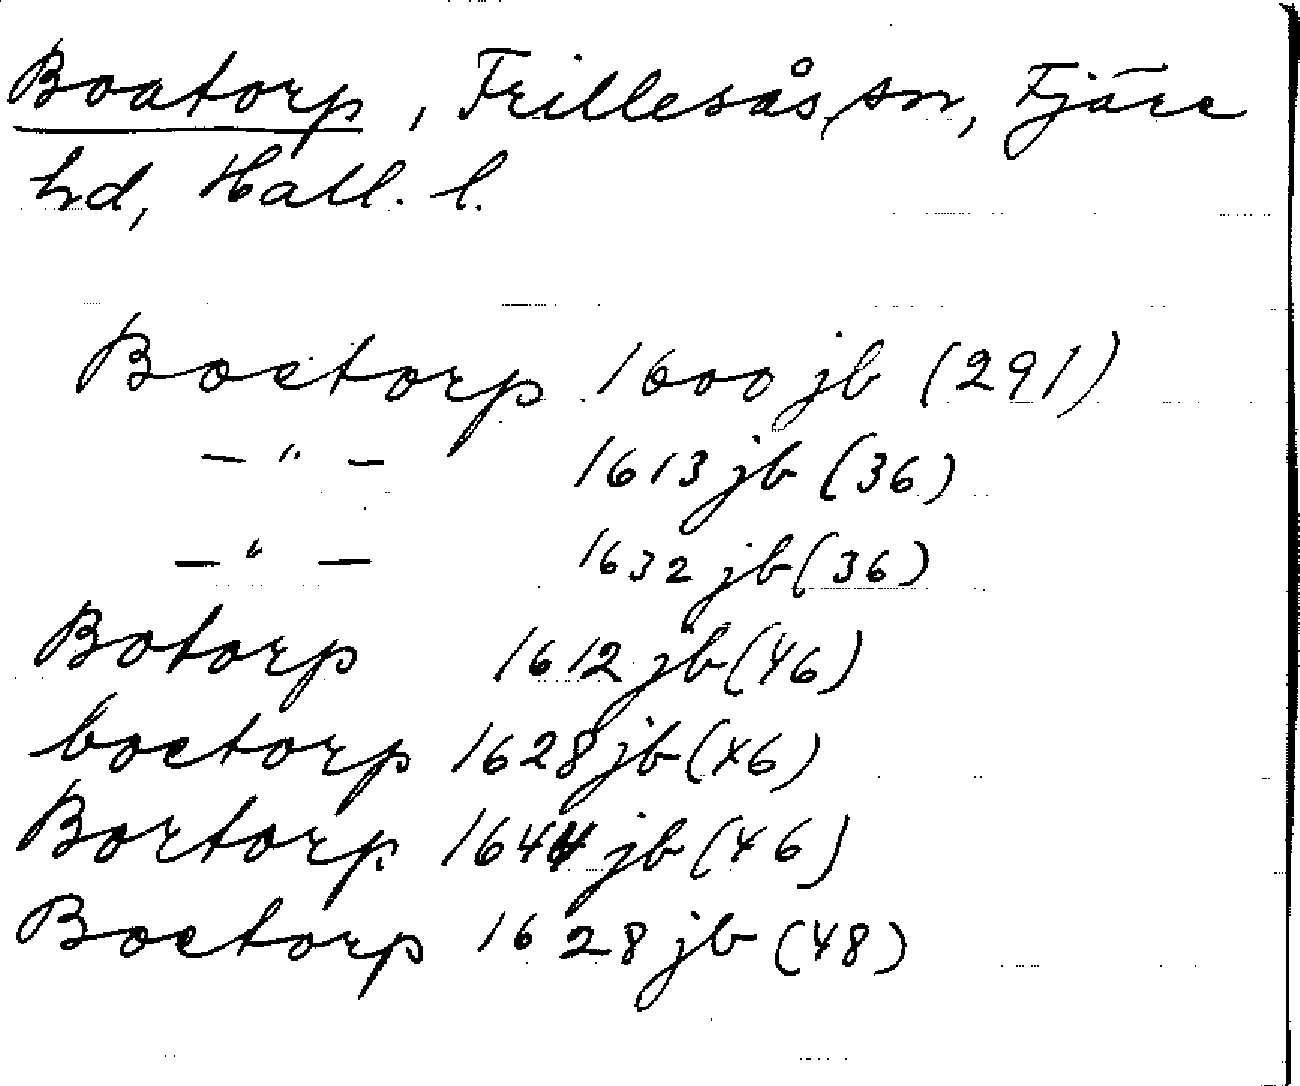 Boatorp, Frillesås sn, Fjäre
hd, Hall. l.
Boetorp 1600 jb (291)
— " — 1613 jb (36)
— " — 1632 jb (36)
Botorp 1612 jb (46)
boetorp 1628 jb (46)
Bortorp 1644 jb (46)
Boetorp 1628 jb (48)